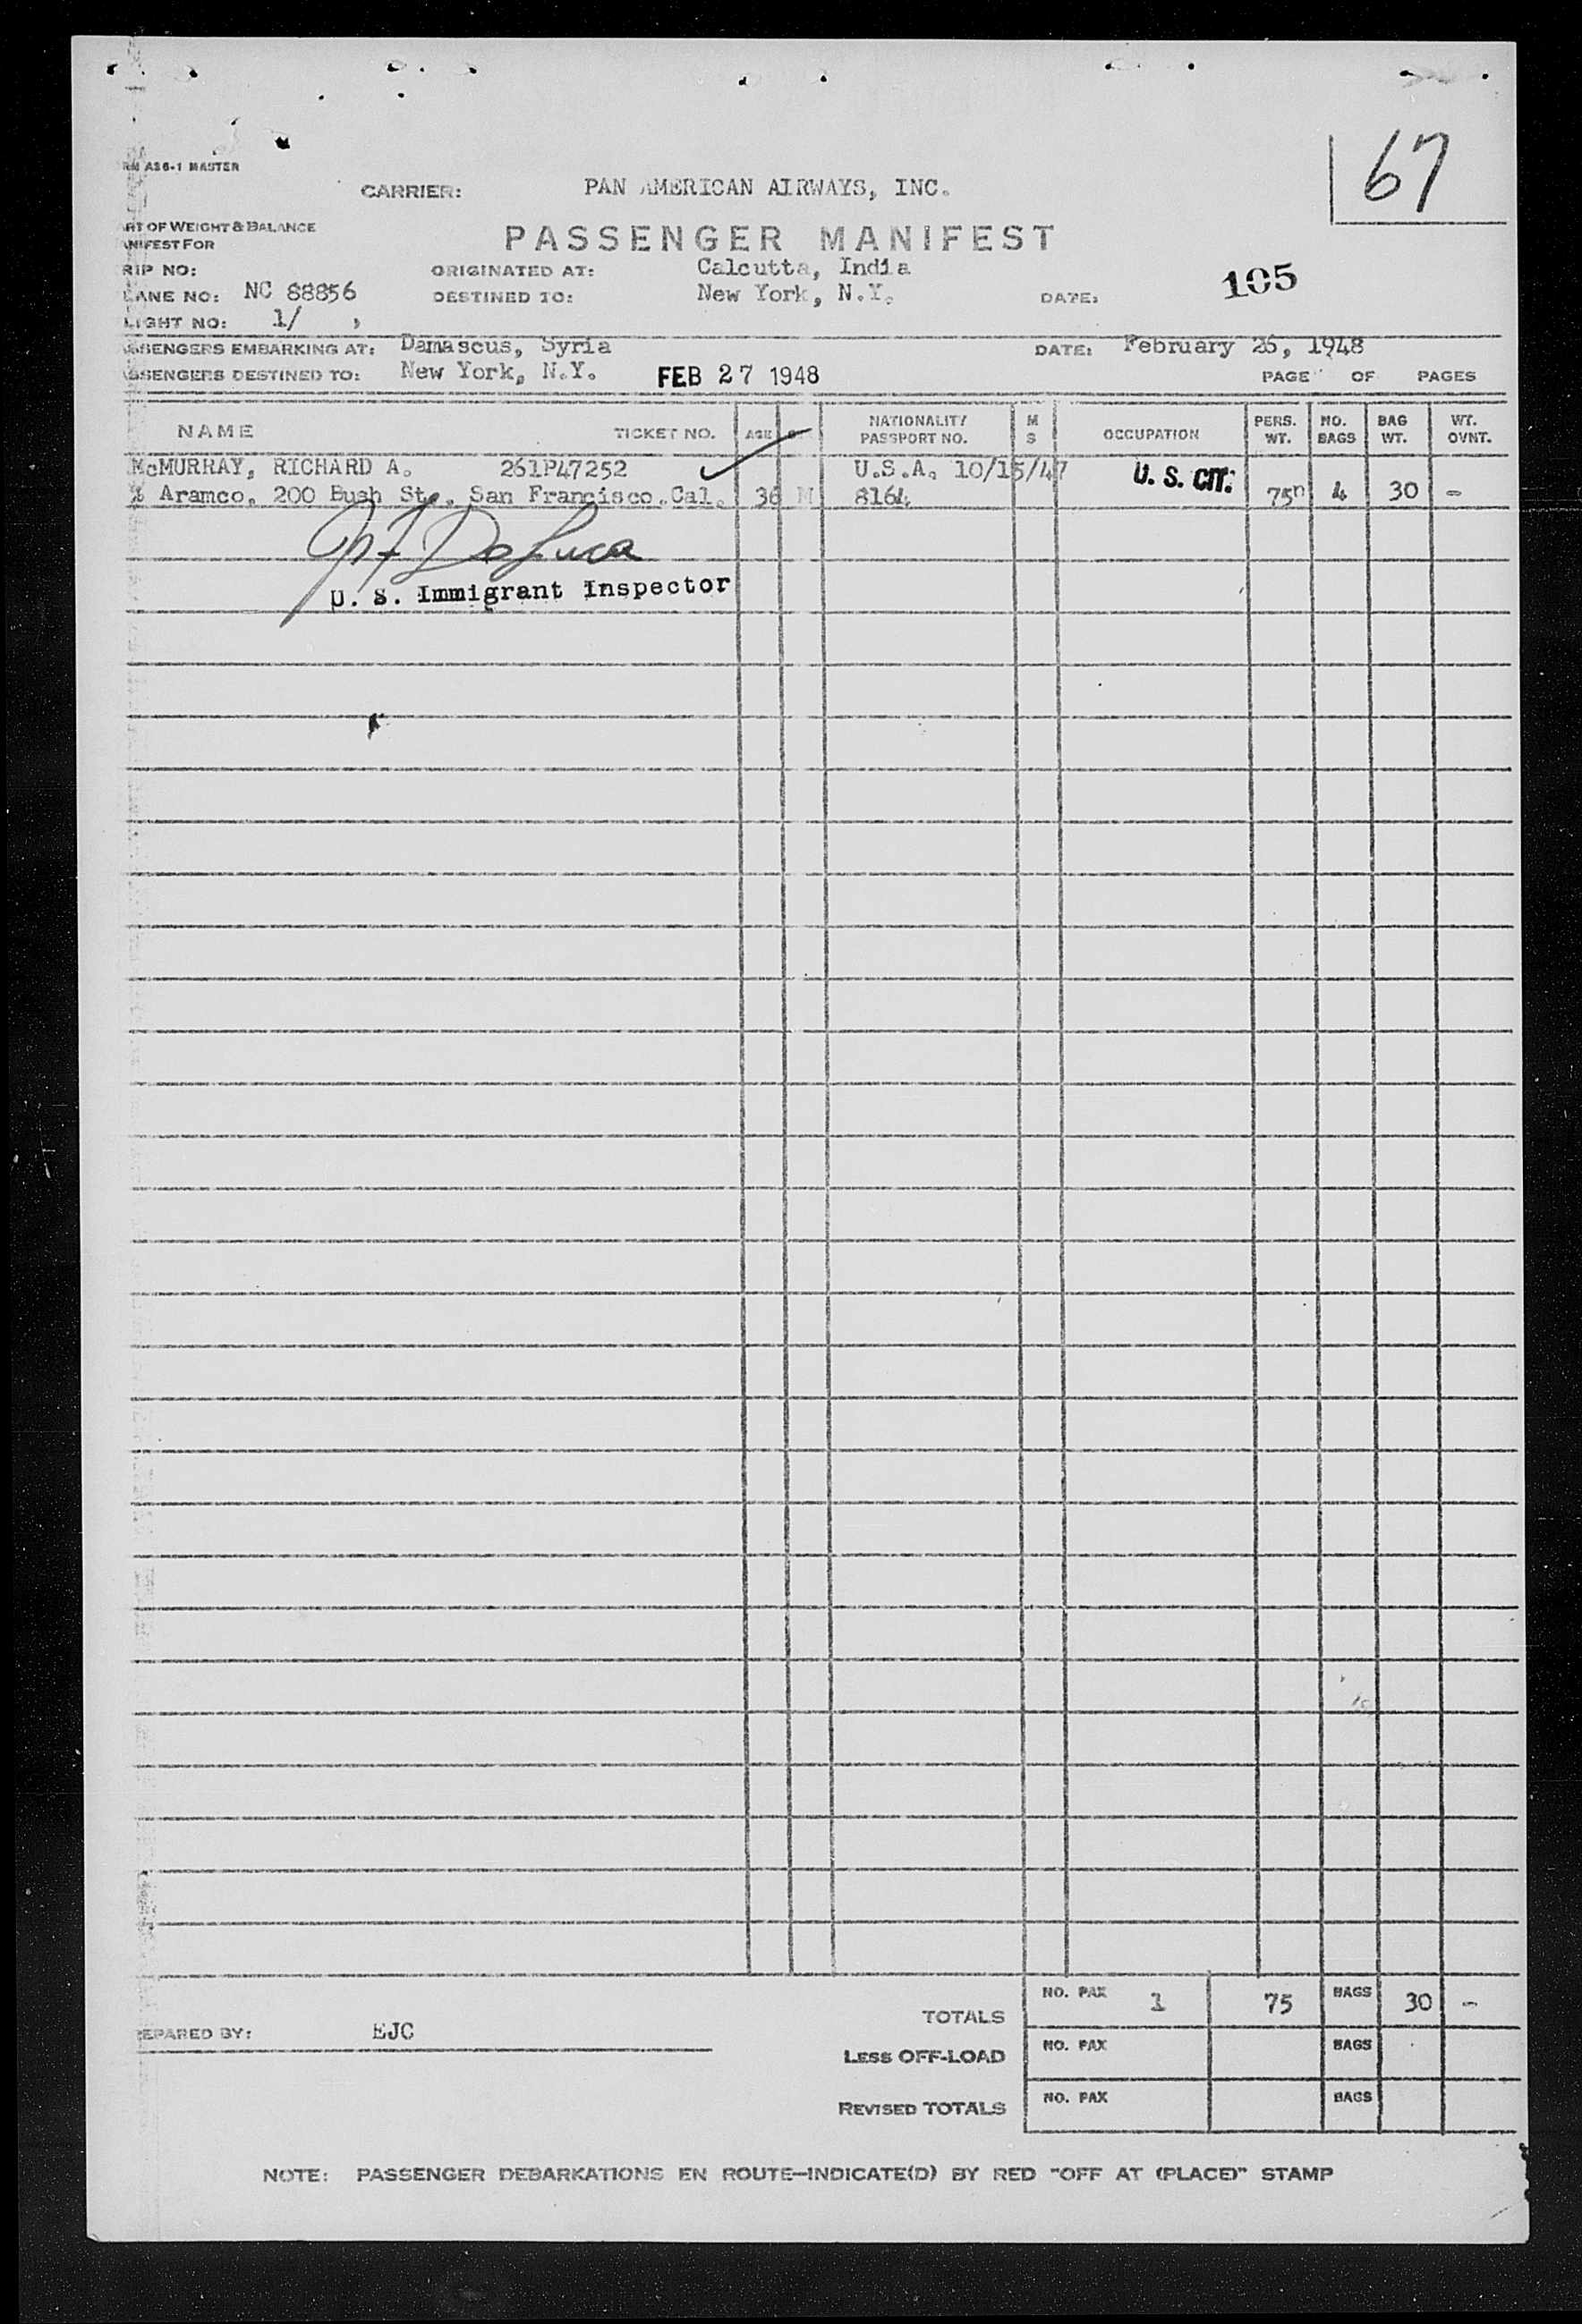 67
RM AS6-1 MASTER
CARRIER: PAN AMERICAN AIRWAYS, INC.
ART OF WEIGHT & BALANCE
ANIFEST FOR
PASSENGER MANIFEST
RIP NO: ORIGINATED AT: Calcutta, India
105
LANE NO: NC 88856 DESTINED TO: New York, N.Y. DATE:
LIGHT NO: 1/
ASSENGERS EMBARKING AT: Damascus, Syria DATE: February 26, 1948
ASSENGERS DESTINED TO: New York, N.Y. FEB 27 1948 PAGE OF PAGES
NAME TICKET NO. AGE NATIONALITY PASSPORT NO. M S OCCUPATION PERS. WT. NO. BAGS BAG WT. WT. OVNT.
McMURRAY, RICHARD A. 261P47252 U.S.A. 10/15/47 U. S. CIT.
% Aramco, 200 Bush St., San Francisco,Cal. 36 M 8164 75 4 30 -
DeLuca
U. S. Immigrant Inspector
TOTALS NO. PAX 1 75 BAGS 30 -
EPARED BY: EJC
LESS OFF-LOAD NO. PAX BAGS
REVISED TOTALS NO. PAX BAGS
NOTE: PASSENGER DEBARKATIONS EN ROUTE—INDICATE(D) BY RED "OFF AT (PLACE)" STAMP